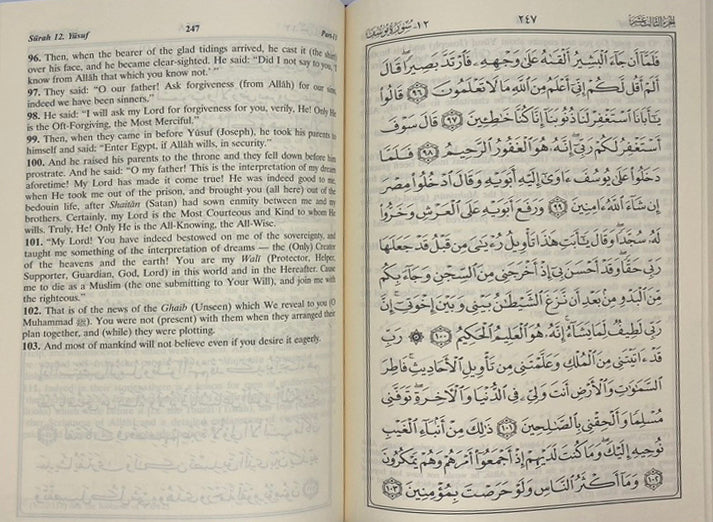 Sûrah 12. Yûsuf 247 Part-13
96. Then, when the bearer of the glad tidings arrived, he cast it (the shirt)
over his face, and he became clear-sighted. He said: "Did I not say to you, 'I
know from Allâh that which you know not.' "
97. They said: "O our father! Ask forgiveness (from Allâh) for our sins,
indeed we have been sinners."
98. He said: "I will ask my Lord for forgiveness for you, verily, He! Only He
is the Oft-Forgiving, the Most Merciful."
99. Then, when they came in before Yûsuf (Joseph), he took his parents to
himself and said: "Enter Egypt, if Allâh wills, in security."
100. And he raised his parents to the throne and they fell down before him
prostrate. And he said: "O my father! This is the interpretation of my dream
aforetime! My Lord has made it come true! He was indeed good to me,
when He took me out of the prison, and brought you (all here) out of the
bedouin life, after Shaitân (Satan) had sown enmity between me and my
brothers. Certainly, my Lord is the Most Courteous and Kind to whom He
wills. Truly, He! Only He is the All-Knowing, the All-Wise.
101. "My Lord! You have indeed bestowed on me of the sovereignty, and
taught me something of the interpretation of dreams — the (Only) Creator
of the heavens and the earth! You are my Walî (Protector, Helper,
Supporter, Guardian, God, Lord) in this world and in the Hereafter. Cause
me to die as a Muslim (the one submitting to Your Will), and join me with
the righteous."
102. That is of the news of the Ghaib (Unseen) which We reveal to you (O
Muhammad ﷺ). You were not (present) with them when they arranged their
plan together, and (while) they were plotting.
103. And most of mankind will not believe even if you desire it eagerly.
الجزء الثالث عشر ٢٤٧ ١٢- سورة يوسف
فَلَمَّآ أَن جَآءَ ٱلْبَشِيرُ أَلْقَىٰهُ عَلَىٰ وَجْهِهِۦ فَٱرْتَدَّ بَصِيرًا ۖ قَالَ
أَلَمْ أَقُل لَّكُمْ إِنِّىٓ أَعْلَمُ مِنَ ٱللَّهِ مَا لَا تَعْلَمُونَ ٩٦ قَالُوا۟
يَـٰٓأَبَانَا ٱسْتَغْفِرْ لَنَا ذُنُوبَنَآ إِنَّا كُنَّا خَـٰطِـِٔينَ ٩٧ قَالَ سَوْفَ
أَسْتَغْفِرُ لَكُمْ رَبِّىٓ ۖ إِنَّهُۥ هُوَ ٱلْغَفُورُ ٱلرَّحِيمُ ٩٨ فَلَمَّا
دَخَلُوا۟ عَلَىٰ يُوسُفَ ءَاوَىٰٓ إِلَيْهِ أَبَوَيْهِ وَقَالَ ٱدْخُلُوا۟ مِصْرَ
إِن شَآءَ ٱللَّهُ ءَامِنِينَ ٩٩ وَرَفَعَ أَبَوَيْهِ عَلَى ٱلْعَرْشِ وَخَرُّوا۟
لَهُۥ سُجَّدًا ۖ وَقَالَ يَـٰٓأَبَتِ هَـٰذَا تَأْوِيلُ رُءْيَـٰىَ مِن قَبْلُ قَدْ جَعَلَهَا
رَبِّى حَقًّا ۖ وَقَدْ أَحْسَنَ بِىٓ إِذْ أَخْرَجَنِى مِنَ ٱلسِّجْنِ وَجَآءَ بِكُم
مِّنَ ٱلْبَدْوِ مِنۢ بَعْدِ أَن نَّزَغَ ٱلشَّيْطَـٰنُ بَيْنِى وَبَيْنَ إِخْوَتِىٓ ۚ إِنَّ
رَبِّى لَطِيفٌ لِّمَا يَشَآءُ ۚ إِنَّهُۥ هُوَ ٱلْعَلِيمُ ٱلْحَكِيمُ ١٠٠ ۞ رَبِّ
قَدْ ءَاتَيْتَنِى مِنَ ٱلْمُلْكِ وَعَلَّمْتَنِى مِن تَأْوِيلِ ٱلْأَحَادِيثِ ۚ فَاطِرَ
ٱلسَّمَـٰوَٰتِ وَٱلْأَرْضِ أَنتَ وَلِىِّۦ فِى ٱلدُّنْيَا وَٱلْـَٔاخِرَةِ ۖ تَوَفَّنِى
مُسْلِمًا وَأَلْحِقْنِى بِٱلصَّـٰلِحِينَ ١٠١ ذَٰلِكَ مِنْ أَنۢبَآءِ ٱلْغَيْبِ
نُوحِيهِ إِلَيْكَ ۖ وَمَا كُنتَ لَدَيْهِمْ إِذْ أَجْمَعُوٓا۟ أَمْرَهُمْ وَهُمْ يَمْكُرُونَ
١٠٢ وَمَآ أَكْثَرُ ٱلنَّاسِ وَلَوْ حَرَصْتَ بِمُؤْمِنِينَ ١٠٣